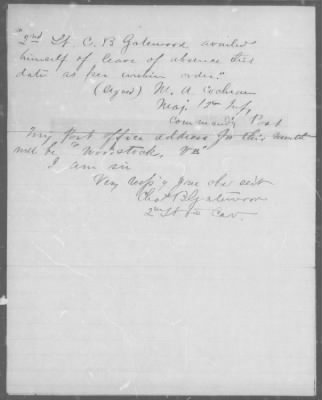 "2nd Lt. C. B Gatewood availed
himself of leave of absence this
date as per within order."
(Signed) M. A. Cochran
Maj. 12th Inf,
Command'g Post
My Post office address for this month
will be "Woodstock, Va"
I am sir
Very resp'y your obdt servt
Chas B Gatewood
2nd Lt 6th Cav.